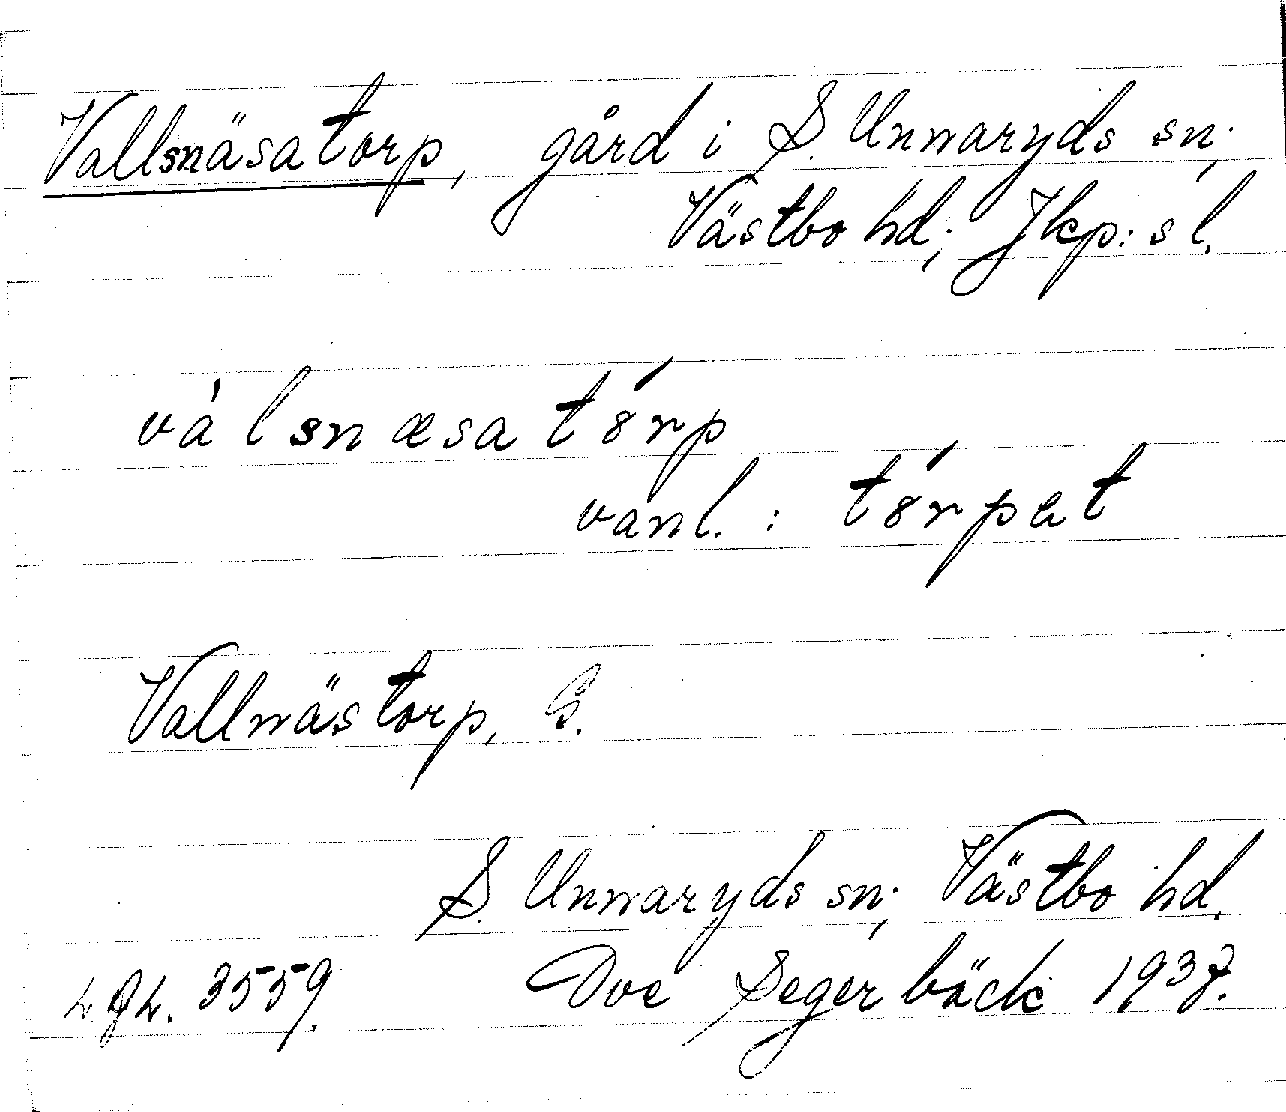 Vallsnäsatorp, gård i S. Unnaryds sn;
Västbo hd; Jkp: s l.
válsnæsatórp
vanl. : tórpæt
Vallnästorp, G.
S. Unnaryds sn; Västbo hd.
3559. Ove Segerbäck 1937.